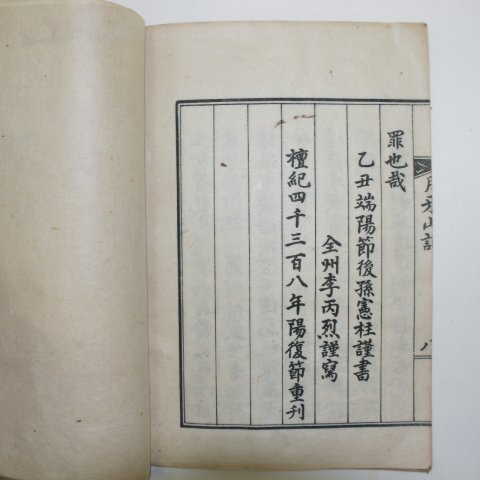 罪也哉
乙丑端陽節後孫憲柱謹書
全州李丙烈謹寫
檀紀四千三百八年陽復節重刊